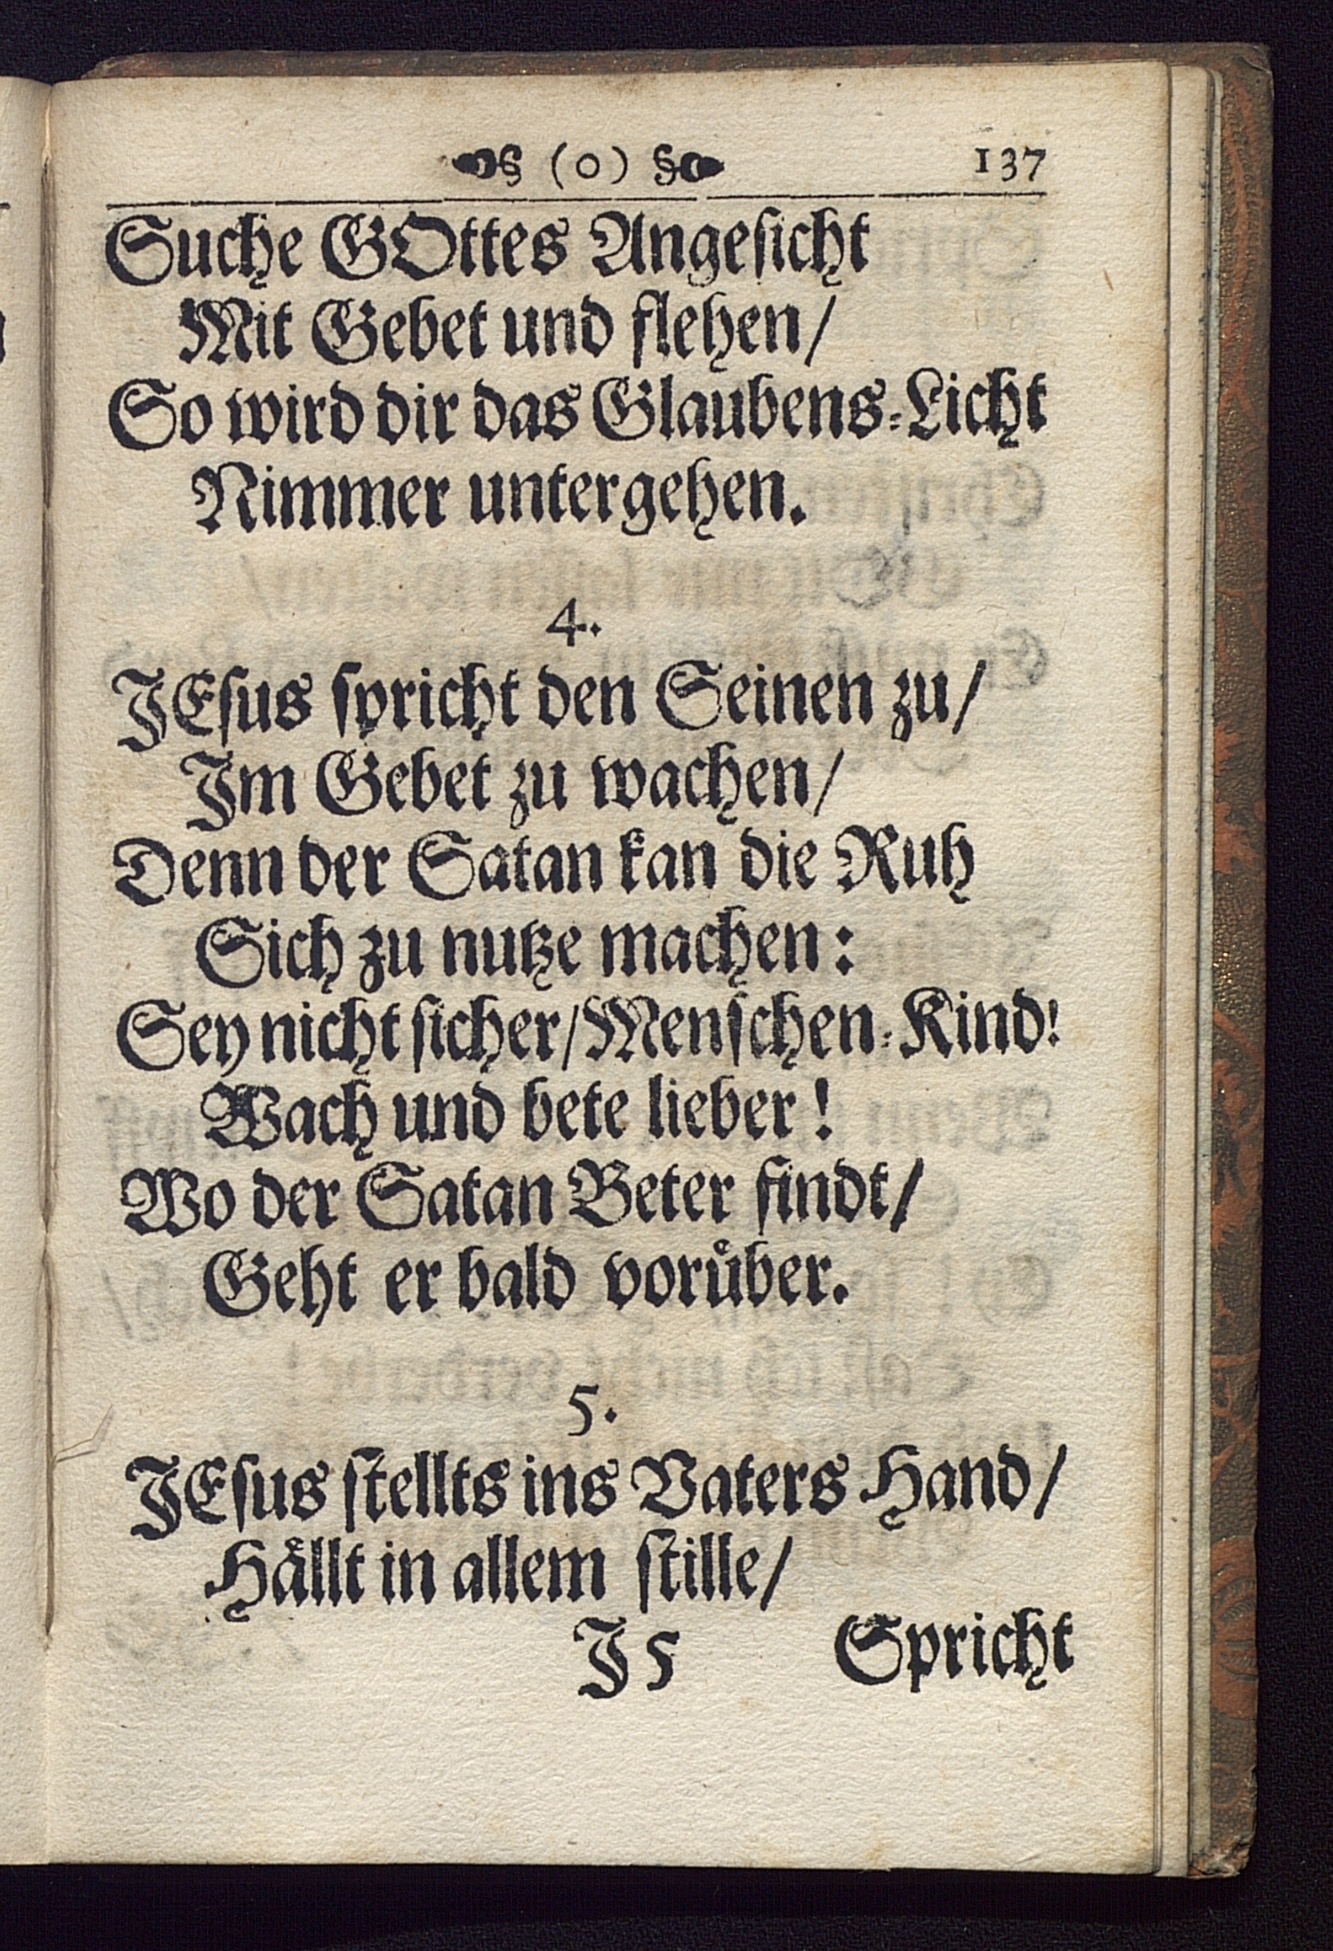 § (0) § 137
Suche GOttes Angesicht
Mit Gebet und flehen/
So wird dir das Glaubens-Licht
Nimmer untergehen.
4.
JEsus spricht den Seinen zu/
Im Gebet zu wachen/
Denn der Satan kan die Ruh
Sich zu nutze machen:
Sey nicht sicher/Menschen-Kind!
Wach und bete lieber!
Wo der Satan Beter findt/
Geht er bald vorůber.
5.
JEsus stellts ins Vaters Hand/
Hållt in allem stille/
J 5 Spricht